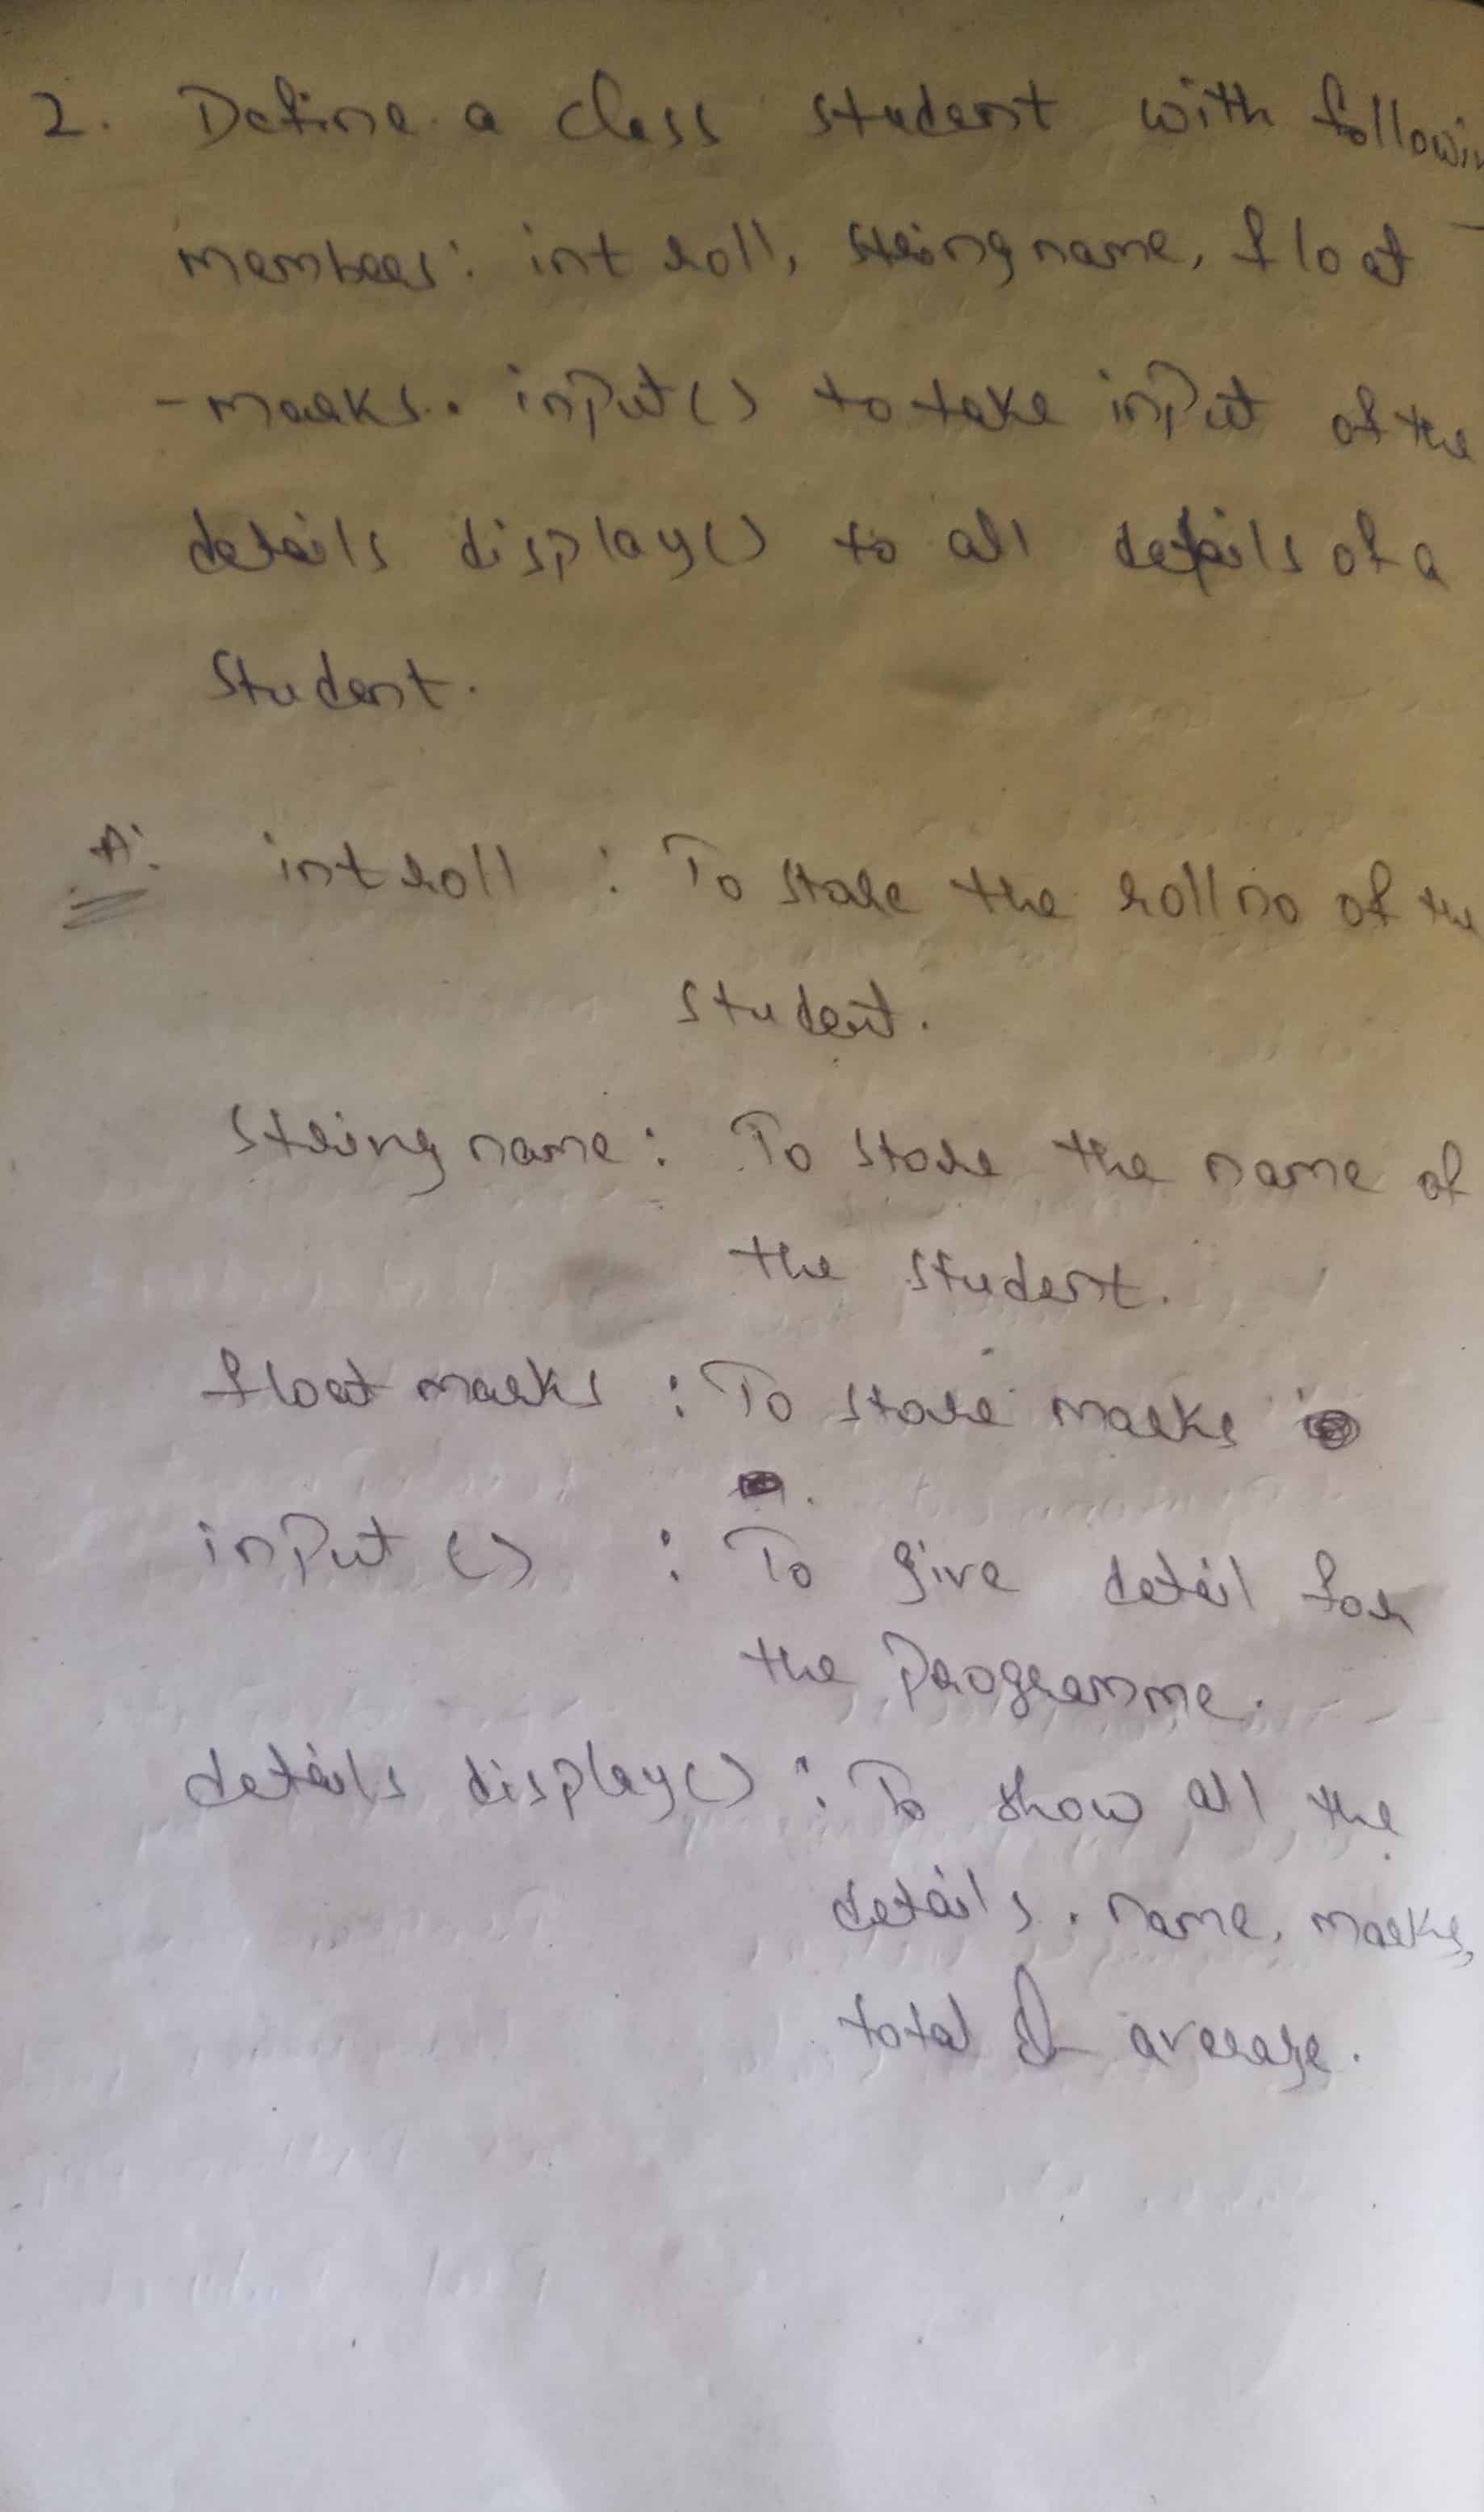 2. Define a class student with followin
members: int roll, string name, float
- marks. input() to take input of the
details display() to all details of a
student.
A: int roll : To store the roll no of the
student.
string name : To store the name of
the student.
float marks : To store marks
input () : To give detail for
the programme.
details display() : To show all the
details. name, marks,
total & average.